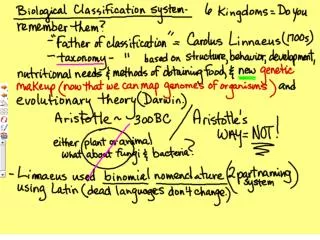 Biological Classification system- 6 Kingdoms = Do you
remember them?
- "Father of classification" = Carolus Linnaeus (1700s)
- taxonomy - " based on structure, behavior, development,
nutritional needs & methods of obtaining food, & new genetic
makeup (now that we can map genomes of organisms) and
evolutionary theory (Darwin).
Aristotle ~ ~ 300BC / Aristotle's
WAY = NOT!
either (plant or animal)
what about fungi & bacteria?
- Linnaeus used binomial nomenclature (2 part naming
system
using Latin (dead languages don't change.)